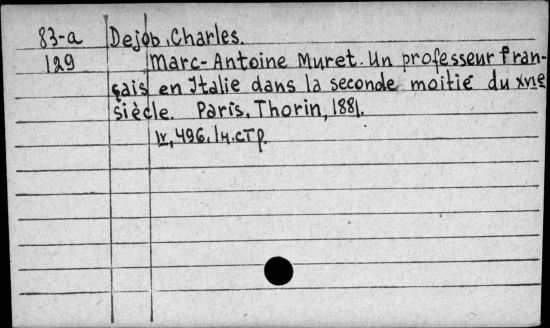 83-a Dejob, Charles.
129 Marc-Antoine Muret. Un professeur fran-
çais en Italie dans la seconde moitié du XVIe
siècle. Paris, Thorin, 1881.
IV, 496, 1 н. стр.